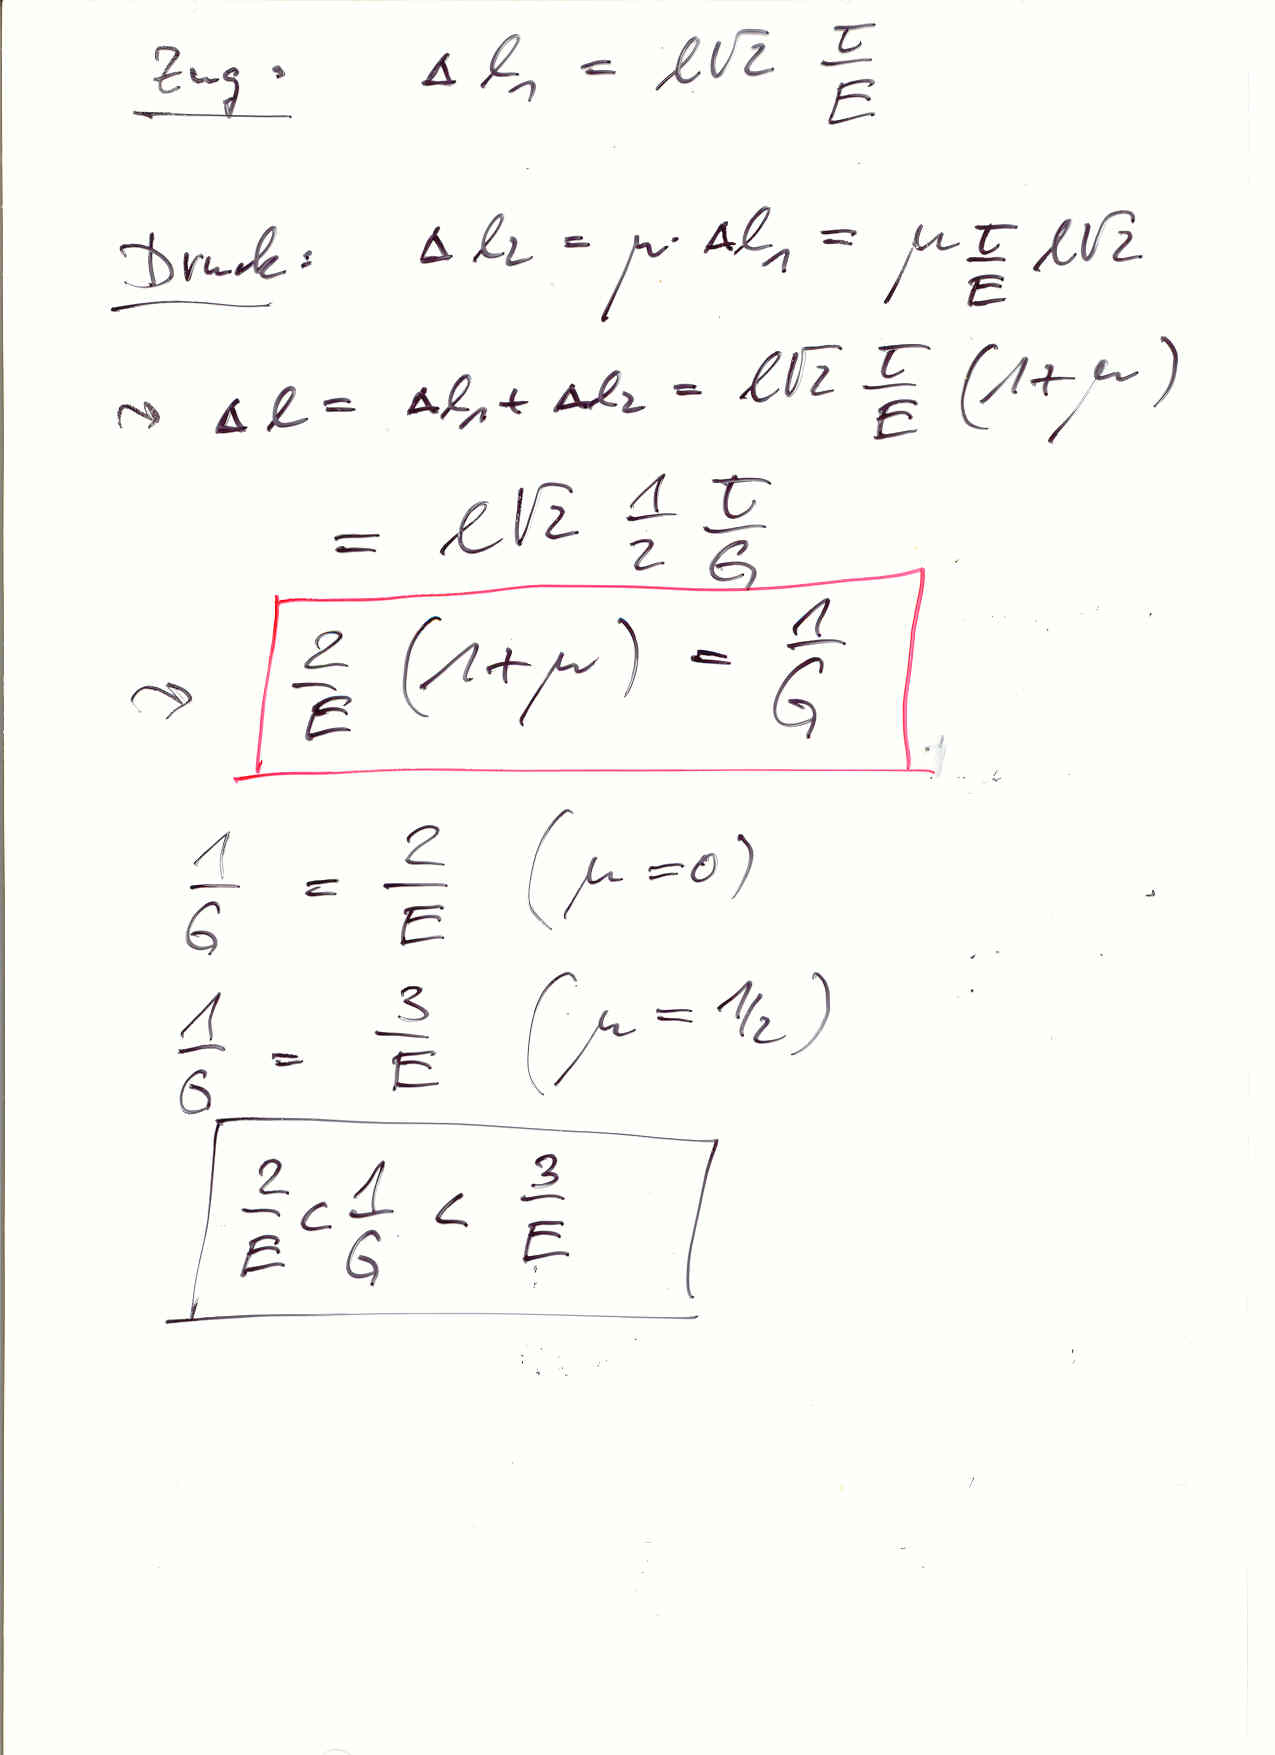 Zug: Δl₁ = l√2 τ/E
Druck: Δl₂ = μ · Δl₁ = μ τ/E l√2
⤳ Δl = Δl₁ + Δl₂ = l√2 τ/E (1+μ)
= l√2 1/2 τ/G
⤳ 2/E (1+μ) = 1/G
1/G = 2/E (μ=0)
1/G = 3/E (μ = 1/2)
2/E < 1/G < 3/E